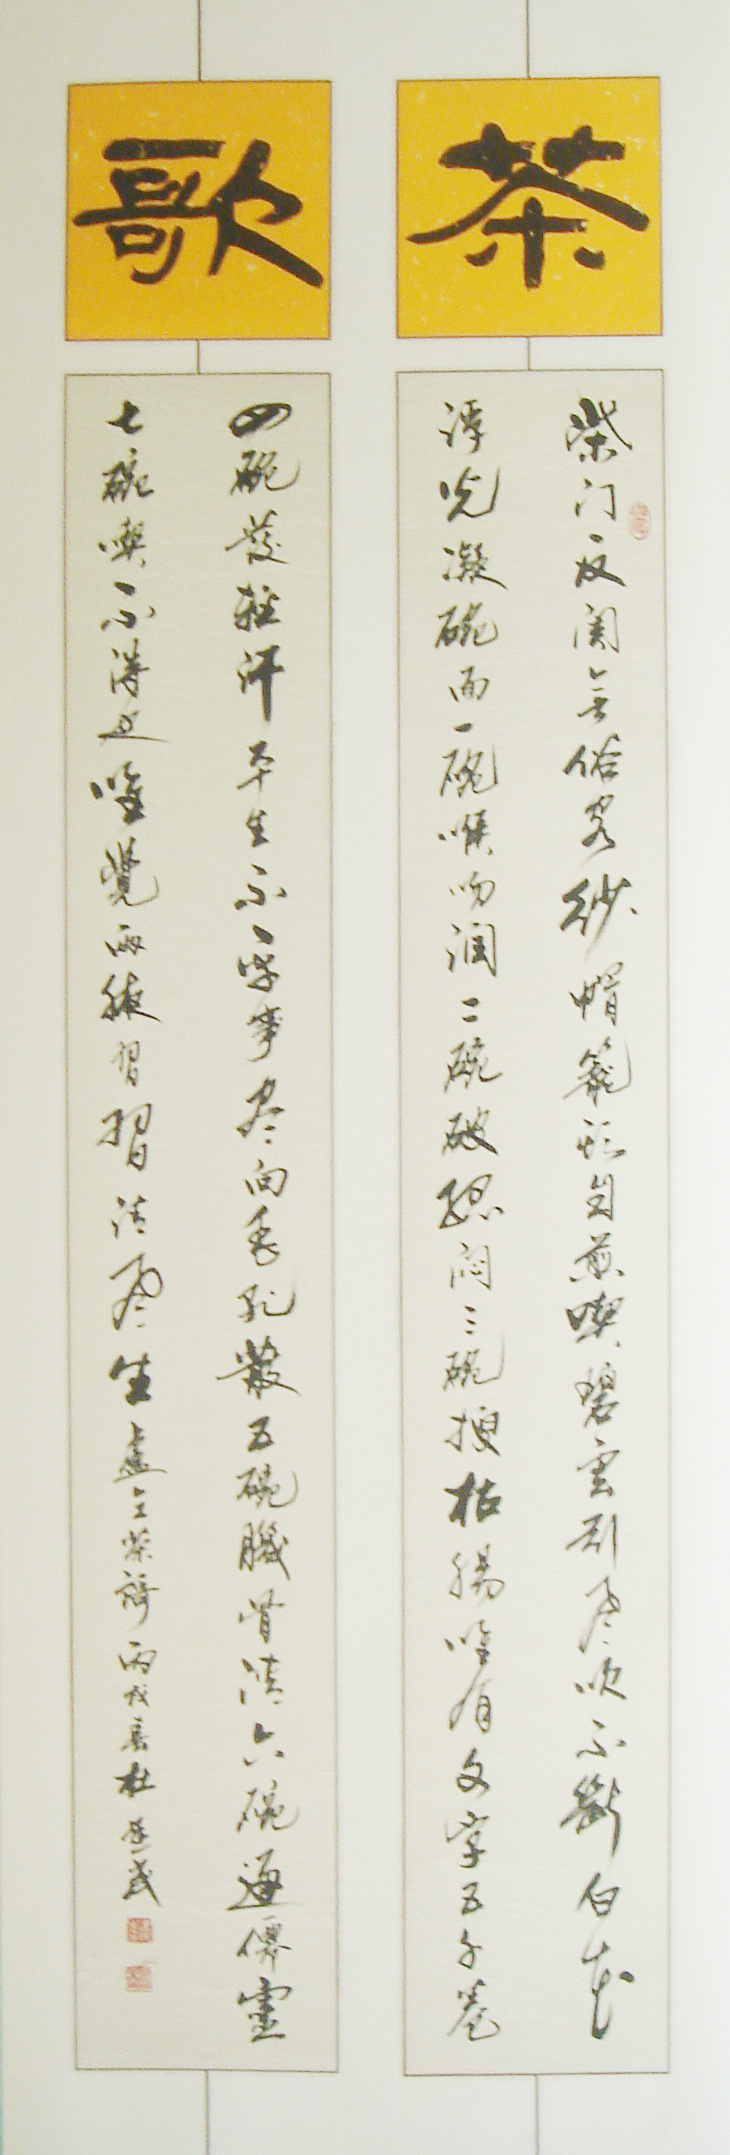 茶
歌
柴门反关无俗客纱帽笼头自煎喫碧云引风吹不断白花
浮光凝碗面一碗喉吻润二碗破孤闷三碗搜枯肠唯有文字五千卷
四碗发轻汗平生不平事尽向毛孔散五碗肌骨清六碗通仙灵
七碗喫不得也唯觉两腋习习清风生卢仝茶诗丙戌春杜